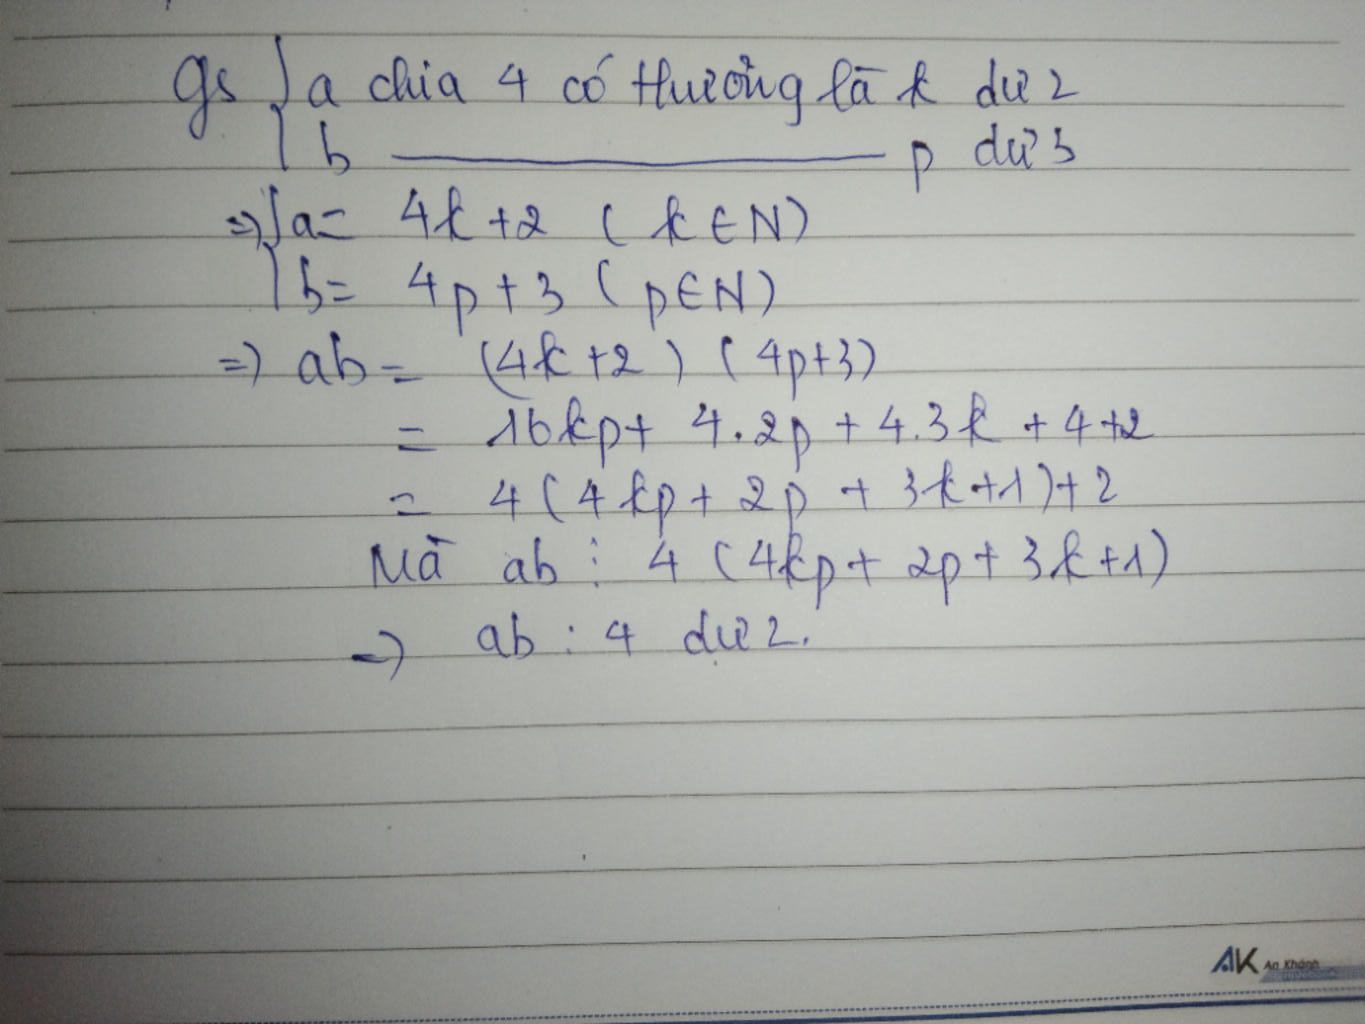 gs { a chia 4 có thương là k dư 2
b ——— p dư 3
=> { a = 4k + 2 ( k ∈ N )
b = 4p + 3 ( p ∈ N )
=> ab = (4k + 2 ) ( 4p+3)
= 16kp + 4.2p + 4.3k + 4 + 2
= 4 ( 4kp + 2p + 3k + 1 ) + 2
Mà ab ⋮ 4 ( 4kp + 2p + 3k + 1)
=> ab : 4 dư 2.
AK An Khánh